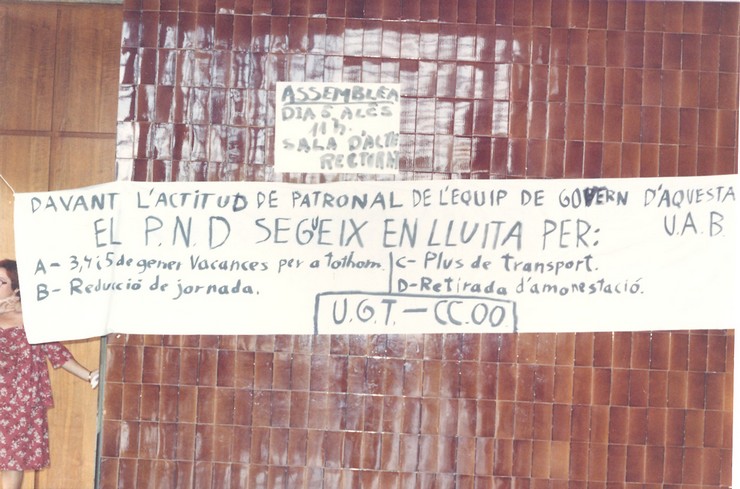 ASSEMBLEA
DIA 5, A LES
11 h.
SALA D'ACTES
RECTORAT
DAVANT L'ACTITUD DE PATRONAL DE L'EQUIP DE GOVERN D'AQUESTA
U.A.B.
EL P.N.D SEGUEIX EN LLUITA PER:
A- 3,4 i 5 de gener Vacances per a tothom.
B- Reducció de jornada.
C- Plus de transport.
D- Retirada d'amonestació.
U.G.T. - CC.OO